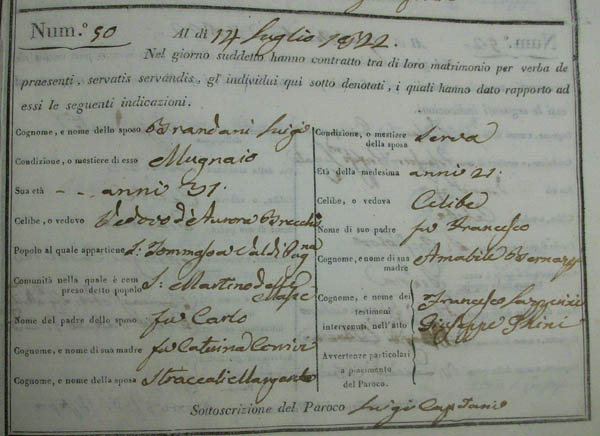 Num.º 50 Al dì 14 Luglio 1822.
Nel giorno suddetto hanno contratto tra di loro matrimonio per verba de
praesenti, servatis servandis, gl'individui qui sotto denotati, i quali hanno dato rapporto ad
essi le seguenti indicazioni.
Cognome, e nome dello sposo Brandani Luigi
Condizione, o mestiere di esso Mugnaio
Sua età - - anni 31.
Celibe, o vedovo Vedovo d'Aurora
Popolo al quale appartiene S: Tommaso a
Comunità nella quale è compreso detto popolo S: Martino
Nome del padre dello sposo fu Carlo
Cognome, e nome di sua madre fu Caterina
Cognome, e nome della sposa Straccali Margarita
Condizione, o mestiere della sposa Serva
Età della medesima anni 21.
Celibe, o vedova Celibe
Nome di suo padre fu Francesco
Cognome, e nome di sua madre Amabile
Cognome, e nome dei testimoni intervenuti nell'atto Francesco
Giuseppe Ghini
Avvertenze particolari
a piacimento
del Paroco.
Sottoscrizione del Paroco Luigi Capitani